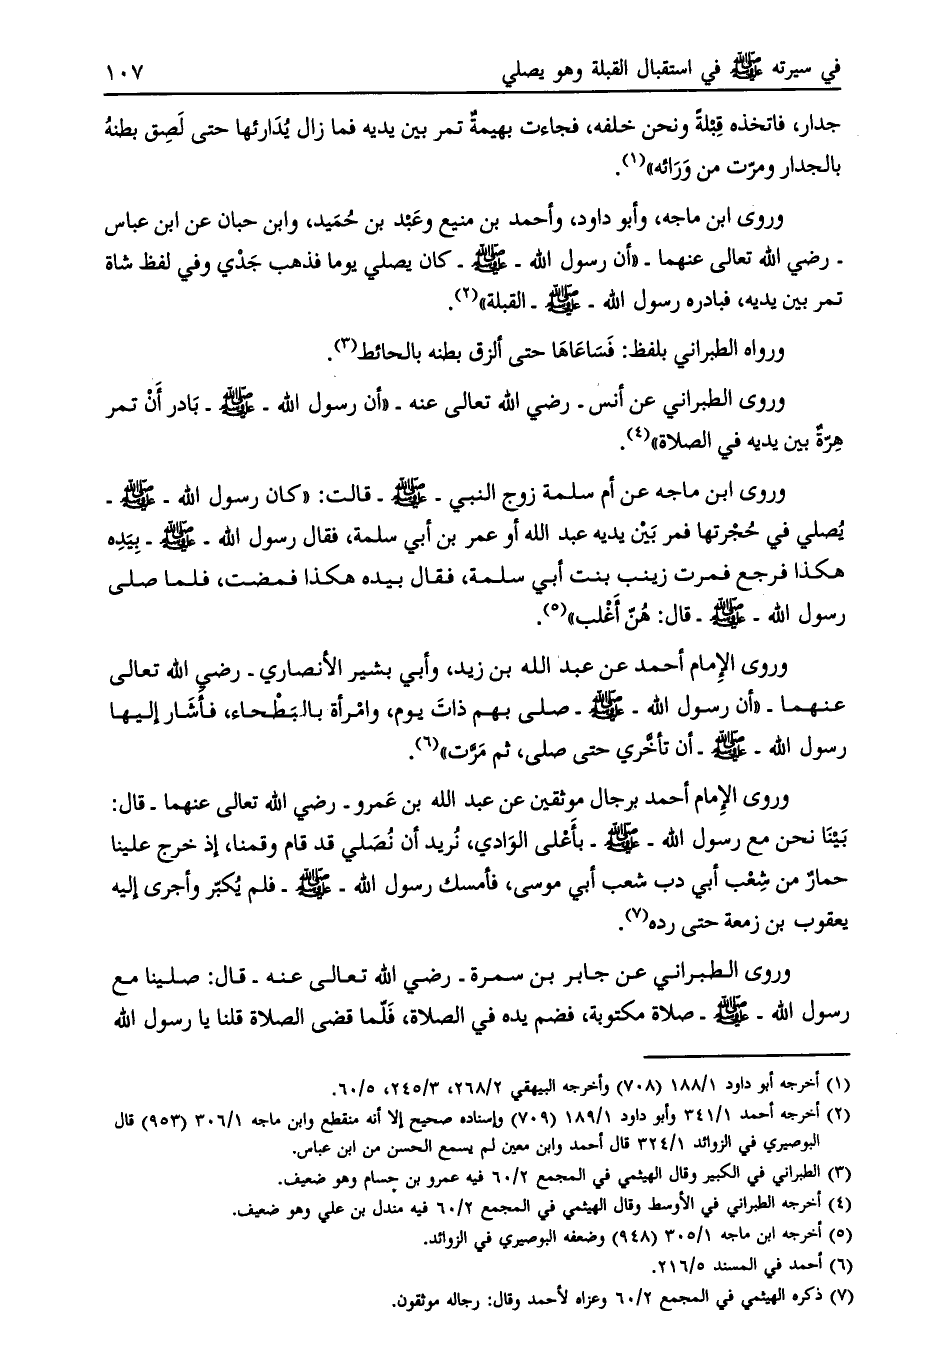 في سيرته ﷺ في استقبال القبلة وهو يصلي ١٠٧
جدار، فاتخذه قِبْلةً ونحن خلفه، فجاءت بهيمةٌ تمر بين يديه فما زال يُدَارئها حتى لَصِق بطنهُ
بالجدار ومرّت من وَرَائه»(١).
وروى ابن ماجه، وأبو داود، وأحمد بن منيع وعَبْد بن حُمَيد، وابن حبان عن ابن عباس
ـ رضي الله تعالى عنهما ـ «أن رسول الله ـ ﷺ ـ كان يصلي يوما فذهب جَدْي وفي لفظ شاة
تمر بين يديه، فبادره رسول الله ـ ﷺ ـ القبلة»(٢).
ورواه الطبراني بلفظ: فَسَاعَاهَا حتى ألزق بطنه بالحائط(٣).
وروى الطبراني عن أنس ـ رضي الله تعالى عنه ـ «أن رسول الله ـ ﷺ ـ بَادر أَنْ تمر
هِرّةٌ بين يديه في الصلاة»(٤).
وروى ابن ماجه عن أم سلمة زوج النبي ـ ﷺ ـ قالت: «كان رسول الله ـ ﷺ ـ
يُصلي في حُجْرتها فمر بَيْن يديه عبد الله أو عمر بن أبي سلمة، فقال رسول الله ـ ﷺ ـ بِيَدِه
هكذا فرجع فمرت زينب بنت أبي سلمة، فقال بيده هكذا فمضت، فلما صلى
رسول الله ـ ﷺ ـ قال: هُنّ أَغْلب»(٥).
وروى الإمام أحمد عن عبد الله بن زيد، وأبي بشير الأنصاري ـ رضي الله تعالى
عنهما ـ «أن رسول الله ـ ﷺ ـ صلى بهم ذاتَ يوم، وامْرأة بالبَطْحاء، فأَشَار إليها
رسول الله ـ ﷺ ـ أن تأخَّري حتى صلى، ثم مَرَّت»(٦).
وروى الإمام أحمد برجال موثقين عن عبد الله بن عَمرو ـ رضي الله تعالى عنهما ـ قال:
بَيْنَا نحن مع رسول الله ـ ﷺ ـ بأَعْلى الوَادي، نُريد أن نُصَلي قد قام وقمنا، إذ خرج علينا
حمارٌ من شِعْب أبي دب شعب أبي موسى، فأمسك رسول الله ـ ﷺ ـ فلم يُكبّر وأجرى إليه
يعقوب بن زمعة حتى رده(٧).
وروى الطبراني عن جابر بن سمرة ـ رضي الله تعالى عنه ـ قال: صلينا مع
رسول الله ـ ﷺ ـ صلاة مكتوبة، فضم يده في الصلاة، فَلّما قضى الصلاة قلنا يا رسول الله
(١) أخرجه أبو داود ١٨٨/١ (٧٠٨) وأخرجه البيهقي ٢٦٨/٢، ٢٤٥/٣، ٦٠/٥.
(٢) أخرجه أحمد ٣٤١/١ وأبو داود ١٨٩/١ (٧٠٩) وإسناده صحيح إلا أنه منقطع وابن ماجه ٣٠٦/١ (٩٥٣) قال
البوصيري في الزوائد ٣٢٤/١ قال أحمد وابن معين لم يسمع الحسن من ابن عباس.
(٣) الطبراني في الكبير وقال الهيثمي في المجمع ٦٠/٢ فيه عمرو بن حسام وهو ضعيف.
(٤) أخرجه الطبراني في الأوسط وقال الهيثمي في المجمع ٦٠/٢ فيه مندل بن علي وهو ضعيف.
(٥) أخرجه ابن ماجه ٣٠٥/١ (٩٤٨) وضعفه البوصيري في الزوائد.
(٦) أحمد في المسند ٢١٦/٥.
(٧) ذكره الهيثمي في المجمع ٦٠/٢ وعزاه لأحمد وقال: رجاله موثقون.